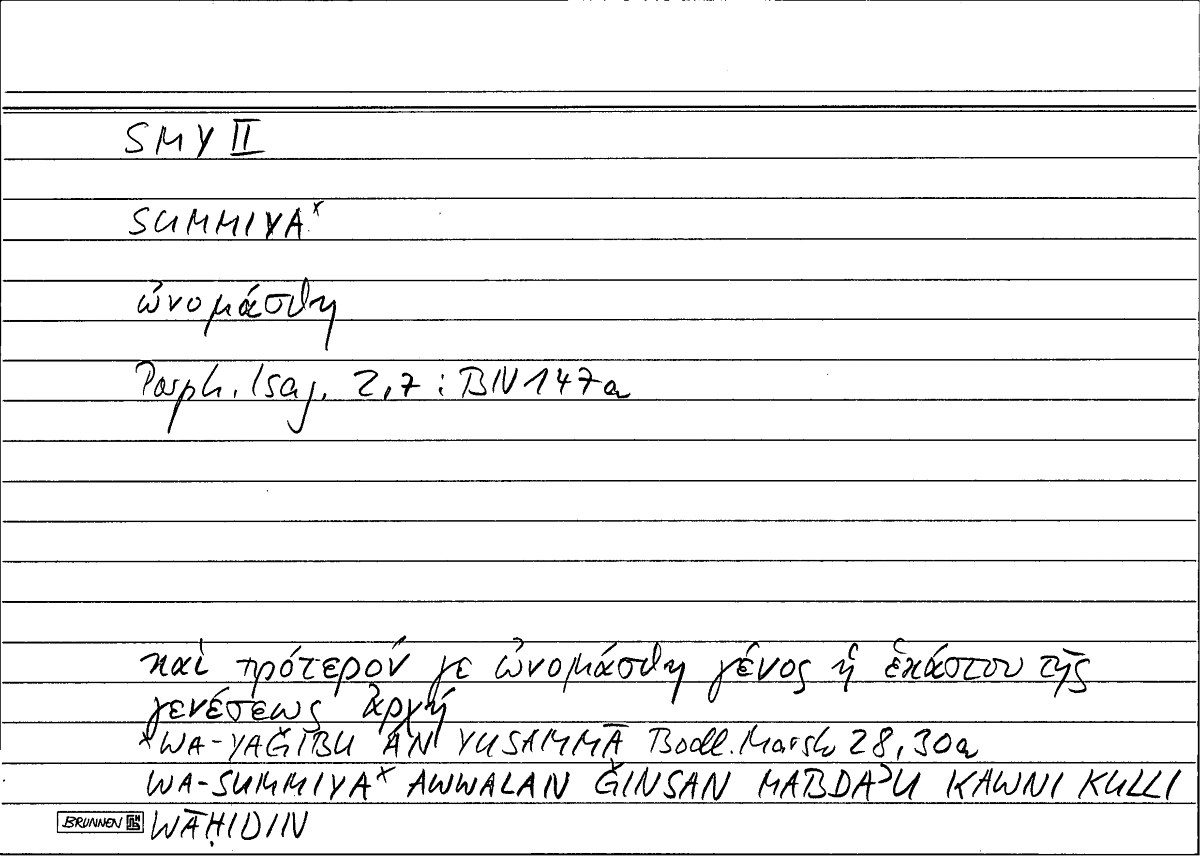 SMY II
SUMMIYA*
ὠνομάσθη
Porph. Isag. 2,7 : BN 147a
καὶ πρότερόν γε ὠνομάσθη γένος ἡ ἑκάστου τῆς
γενέσεως ἀρχή
*WA-YAǦIBU AN YUSAMMĀ Bodl. Marsh 28, 30a
WA-SUMMIYA* AWWALAN ǦINSAN MABDAʾU KAWNI KULLI
BRUNNEN WĀḤIDIN